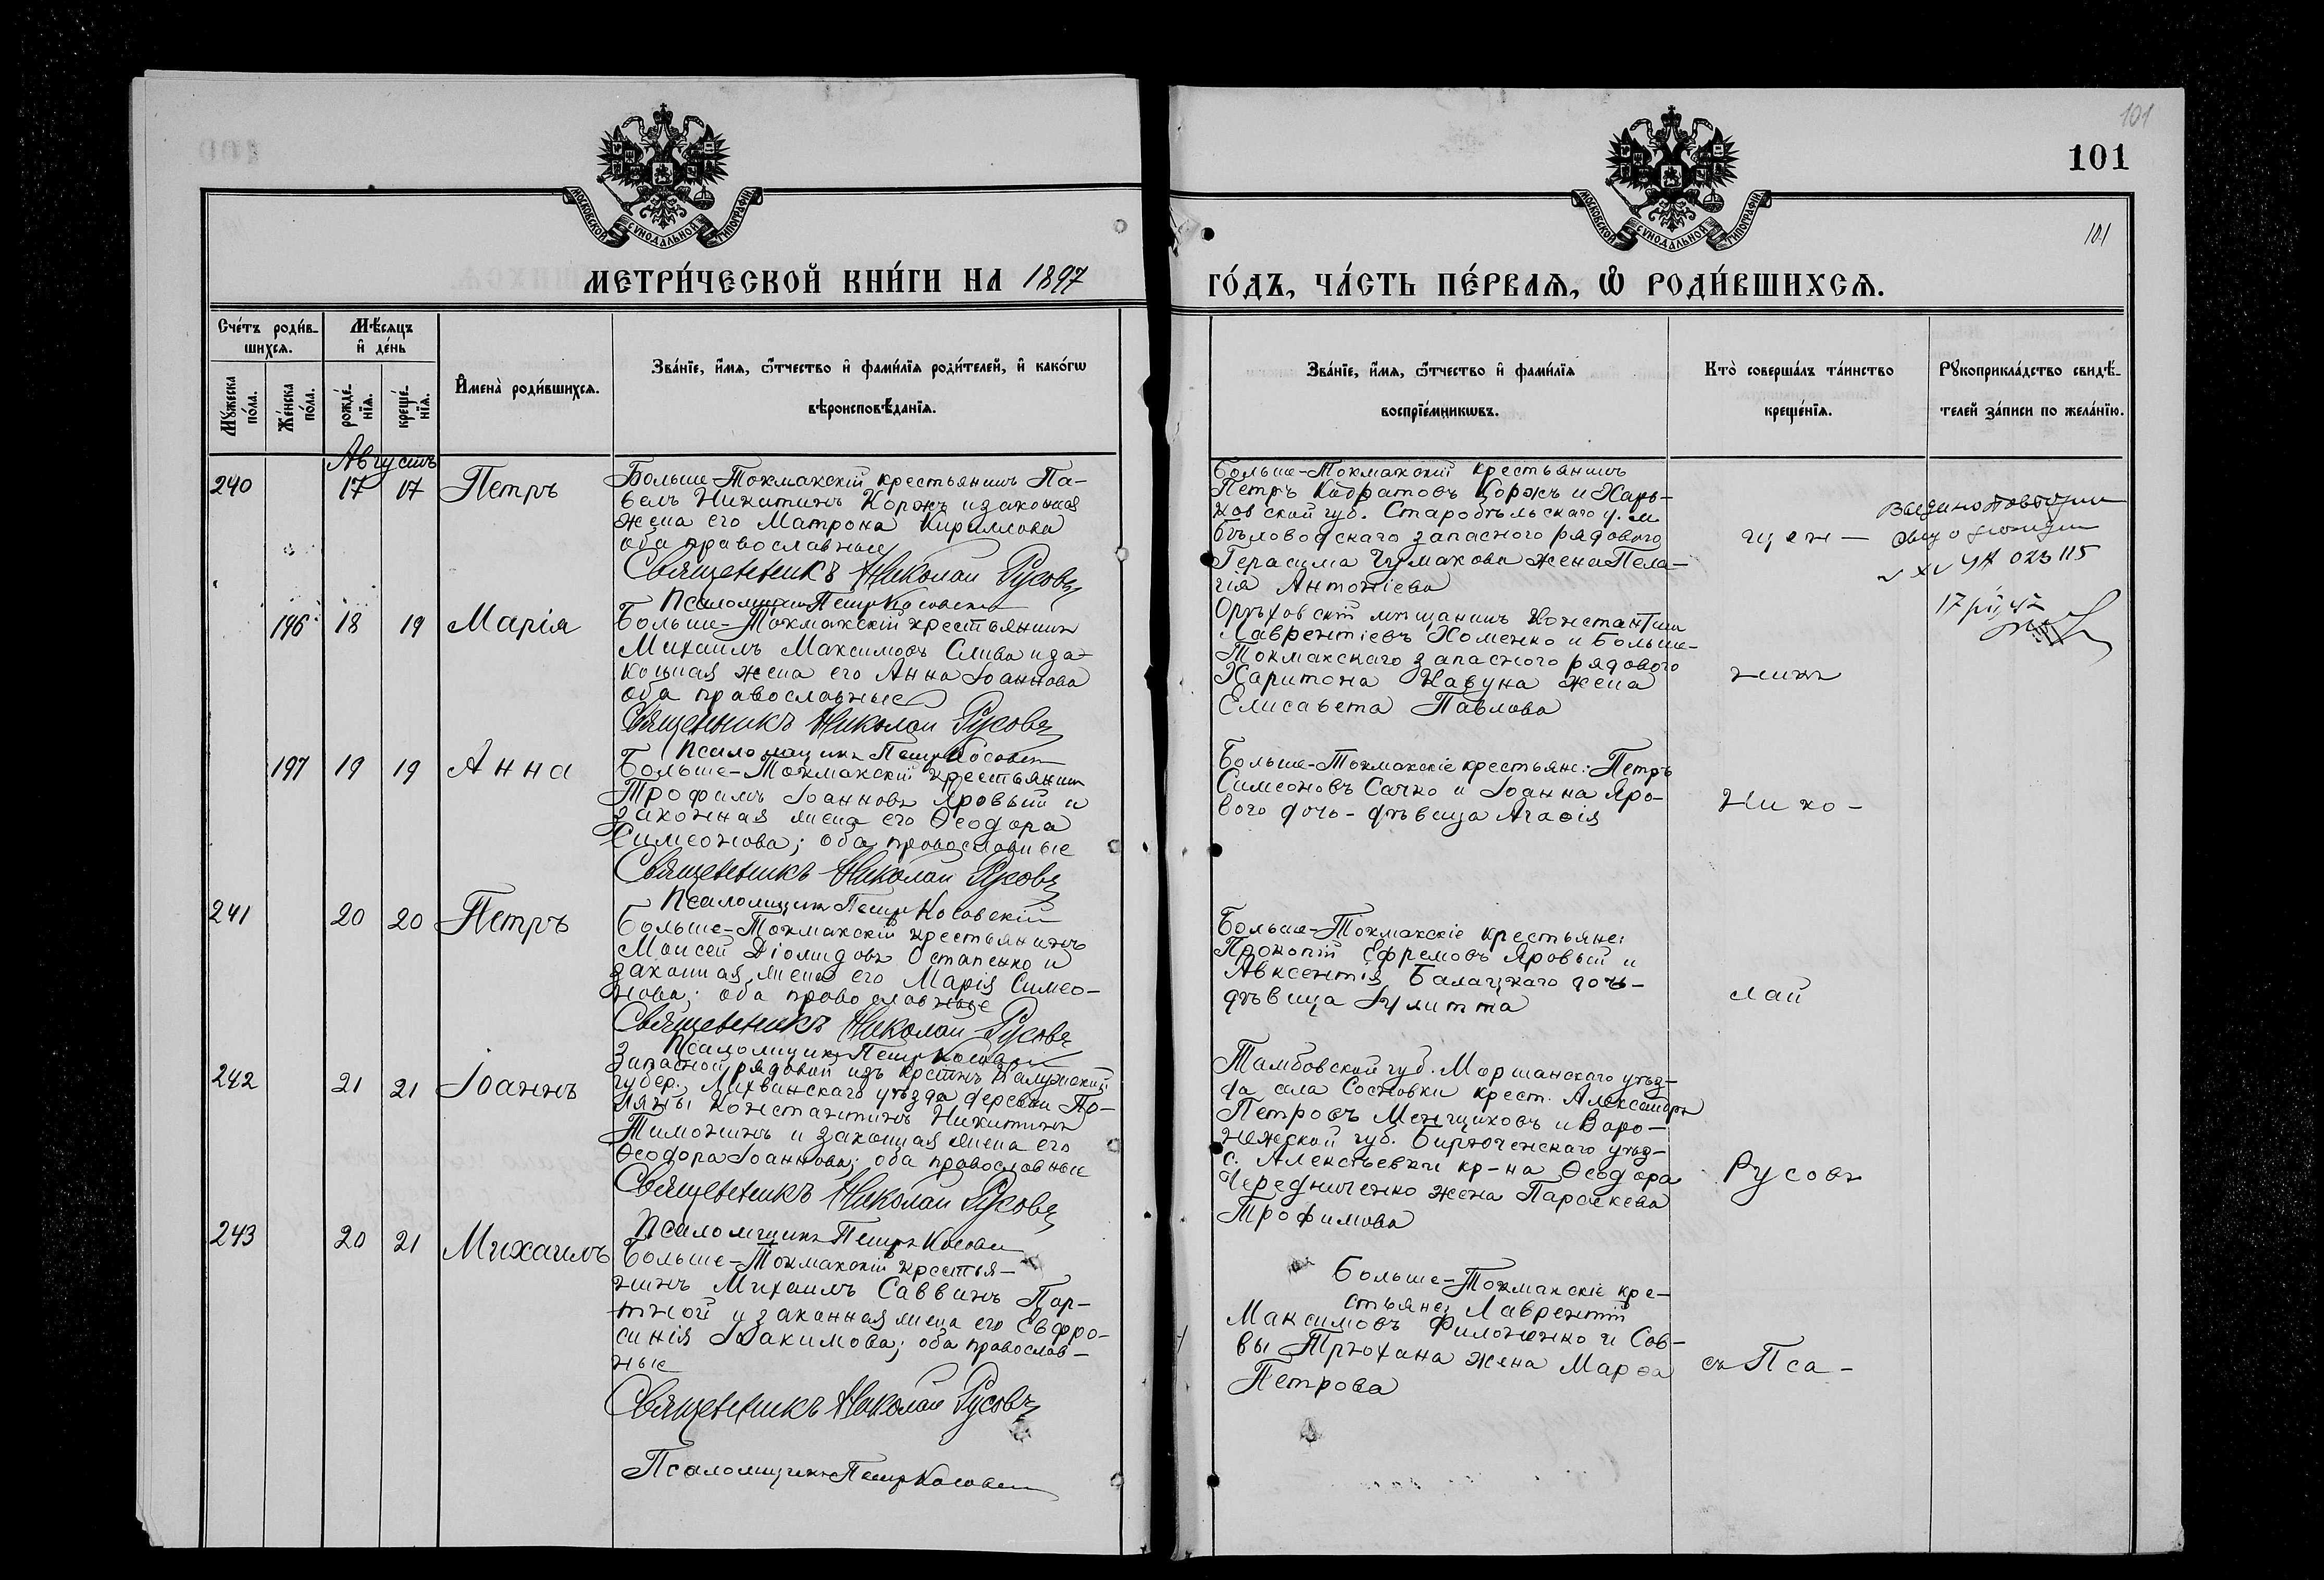 101
101
МОСКОВСКОЙ СѴНОДАЛЬНОЙ ТИПОГРАФІИ
МОСКОВСКОЙ СѴНОДАЛЬНОЙ ТИПОГРАФІИ
101
МЕТРИ́ЧЕСКОЙ КНИ́ГИ НА 1897
ГО́ДЪ, ЧА́СТЬ ПЕ́РВАѦ, Ѡ҆ РОДИ́ВШИХСѦ.
Сче́тъ роди́в-
шихсѧ.
Мѣ́сѧцъ
и҆ де́нь
Мꙋ́жеска
по́ла.
Же́нска
по́ла.
рожде́-
нїѧ.
креще́-
нїѧ.
И҆мена̀ роди́вшихсѧ.
Зва́нїе, и҆́мѧ, ѻ҆́тчество и҆ фами́лїѧ роди́телей, и҆ како́гѡ
вѣроисповѣ́данїѧ.
Зва́нїе, и҆́мѧ, ѻ҆́тчество и҆ фами́лїѧ
воспрїе́мникѡвъ.
Кто̀ соверша́лъ та́инство
креще́нїѧ.
Рꙋкоприкла́дство свидѣ́-
телей за́писи по жела́нїю.
Августъ
240 17 17 Петръ
Больше-Токмакскій крестьянинъ Па-
велъ Никитинъ Коржъ и законная
жена его Матрона Кириллова
оба православные
Священникъ Николай Русовъ
Псаломщикъ Петръ Косовскій
Больше-Токмакскій крестьянинъ
Петръ Коржъ и Харь-
ковской губ. Старобѣльскаго у. м.
Бѣловодскаго запаснаго рядового
Герасима Чумакова жена Пела-
гія Антоніева
щен-
023115
196 18 19 Марія
Больше-Токмакскій крестьянинъ
Михаилъ Максимовъ Слива и за-
конная жена его Анна Іоаннова
оба православные
Священникъ Николай Русовъ
Псаломщикъ Петръ Косовскій
Орѣховскій мѣщанинъ Константинъ
Лаврентіевъ Хоменко и Больше-
Токмакскаго запаснаго рядового
Харитона Кавуна жена
Елисавета Павлова
никъ
197 19 19 Анна
Больше-Токмакскій крестьянинъ
Трофимъ Іоанновъ Яровый и
законная жена его Ѳеодора
Симеонова; оба православные
Священникъ Николай Русовъ
Псаломщикъ Петръ Косовскій
Больше-Токмакскіе крестьяне: Петръ
Симеоновъ Сачко и Іоанна Яро-
вого дочь-дѣвица Агафія
Нико-
241 20 20 Петръ
Больше-Токмакскій крестьянинъ
Моисей Діомидовъ Остапенко и
законная жена его Марія Симео-
нова; оба православные
Священникъ Николай Русовъ
Псаломщикъ Петръ Косовскій
Больше-Токмакскіе крестьяне:
Прокопій Ефремовъ Яровый и
Авксентія Балацкаго дочь-
дѣвица Іулитта
лай
242 21 21 Іоаннъ
Запасной рядовой изъ крестьянъ Калужской
губер. Лихвинскаго уѣзда деревни По-
ляны Константинъ Никитинъ
Тимонинъ и законная жена его
Ѳеодора Іоаннова; оба православные
Священникъ Николай Русовъ
Псаломщикъ Петръ Косовскій
Тамбовской губ. Моршанскаго уѣз-
да села Сосновки крест. Александръ
Петровъ Менщиковъ и Воро-
нежской губ. Бирюченскаго уѣзд-
с. Алексѣевки кр-на Ѳеодора
Чередниченко жена Параскева
Трофимова
Русовъ
243 20 21 Михаилъ
Больше-Токмакскій крестья-
нинъ Михаилъ Саввинъ Пор-
тной и законная жена его Евфро-
синія Іоакимова; оба православ-
ные
Священникъ Николай Русовъ
Псаломщикъ Петръ Косовскій
Больше-Токмакскіе кре-
стьяне: Лаврентій
Максимовъ Филоненко и Сав-
вы Трюхана жена Марѳа
Петрова
съ Пса-